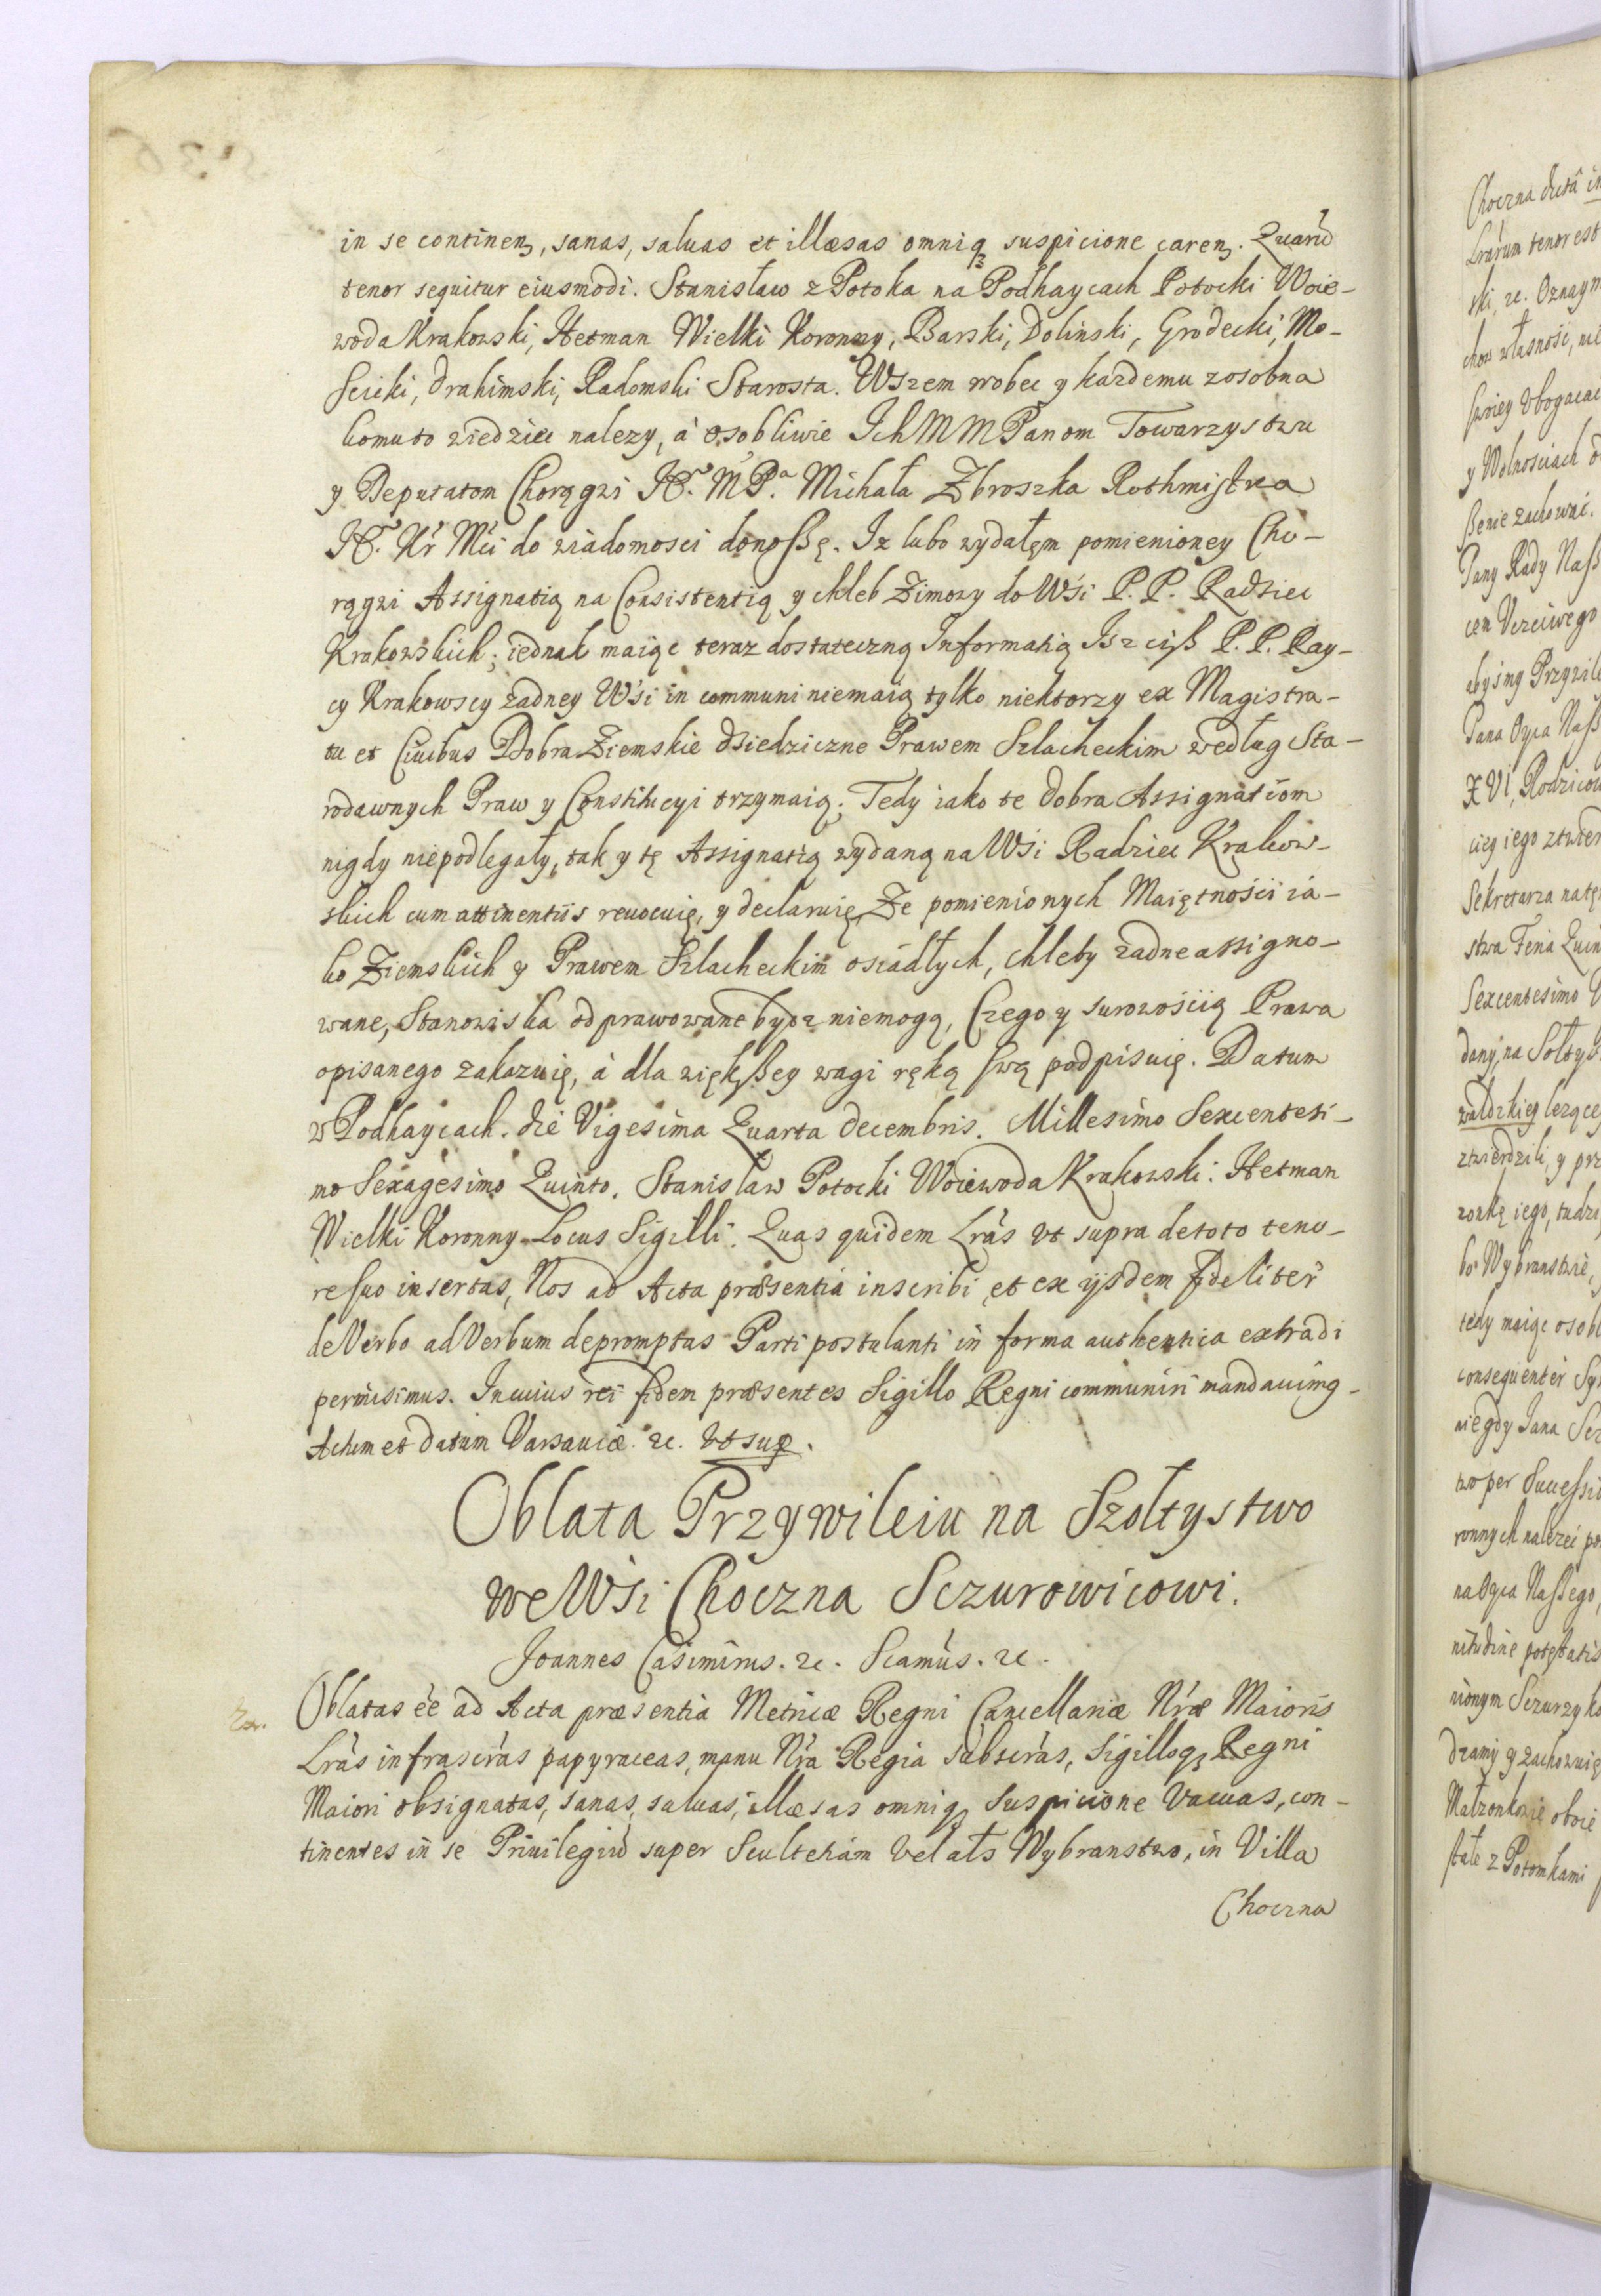 in se continen, sanas, saluas et illæsas omniq suspicione caren. Quarũ
tenor sequitur eiusmodi. Stanisław z Potoka na Podhaycach Potocki Woie-
woda Krakowski, Hetman Wielki Koronny, Barski, Dolinski, Grodecki, Mo-
scicki, Drahimski, Radomski Starosta. Wszem wobec y każdemu zosobna
komu to wiedziec nalezy, à osobliwie Ich M M Panom Towarzystwu
y Deputatom Chorągzi M P.a Michała Zbroszka Rothmistrza
Kr Mci do wiadomosci donoszę. Iz lubo wydałęm pomienioney Cho-
rągzi Assignatią na Consistentią y chleb Zimowy do Wśi P. P. Radziec
Krakowskich; iednak maiąc teraz dostateczną Informatią Isz ciż P. P. Ray-
cy Krakowscy żadney Wśi in communi niemaią tylko niektorzy ex Magistra-
tu et Ciuibus Dobra Ziemskie dziedziczne Prawem Szlacheckim według Sta-
rodawnych Praw y Constitucyi trzymaią; Tedy iako te Dobra Assignatiom
nigdy niepodlegały, tak y tę Assignatią wydaną na Wśi Radziec Krakow-
skich cum attinentiis reuocuię, y declaruię, Ze pomienionych Maiętnośći ia-
ko Ziemskich y Prawem Szlacheckim ośiadłych, chleby żadne assigno-
wane, Stanowiska odprawowane bydz niemogą, Czego y surowośćią Prawa
opisanego zakazuię, à dla większey wagi ręką swą podpisuię. Datum
w Podhaycach. die Vigesima Quarta decembris. Millesimo Sexcentesi-
mo Sexagesimo Quinto. Stanisław Potocki Woiewoda Krakowski: Hetman
Wielki Koronny. Locus Sigilli. Quas quidem Lrás ut supra de toto teno-
re suo insertas, Nos ad Acta præsentia inscribi, et ex ijsdem fideliter
de Verbo ad Verbum depromptas Parti postulanti in forma authentica extradi
permisimus. In cuius rei fidem præsentes Sigillo Regni communiri mandauimg-
Actum et datum Varsauiæ. &c. ut sup.
Oblata Przywileiu na Szołtystwo
we Wśi Choczna Sczurowicowi.
Joannes Casimirus. &c. Scamùs. &c.
Oblatas eẽ ad Acta præsentia Metricæ Regni Cancellariæ Nræ Maioris
Lrás infrascràs papyraceas, manu Nra Regia subscràs, Sigilloq Regni
Maiori obsignatas, sanas, saluas, illæsas omniq suspicione vacuas, con-
tinentes in se Priuilegiũ super Scultetiam vel als Wybranstwo, in Villa
Choczna
Choczna dictâ
Lrarum tenor est
ski, &c. Oznaym
chow własność,
y Wolnosciach
zachować.
Pany Rady Nasz
cen Vczciwego
abyśmy Przywile
Pana Oyca Nasz
Rodzicow
iego ztwier
Sekretarza
stwa
Sexcentesimo
dany, na Sołtys
leżące
ztwierdzili, y prz
iego, tudzi
Wybranstwie,
tedy maiąc osobl
consequenter
niegdy Jana Scz
per Successi
ronnych należeć
na Oyca Naszego,
nitudine potestatis
nionym Sczurzyko
y zachowuię
Małżonkowie oboie
z Potomkami